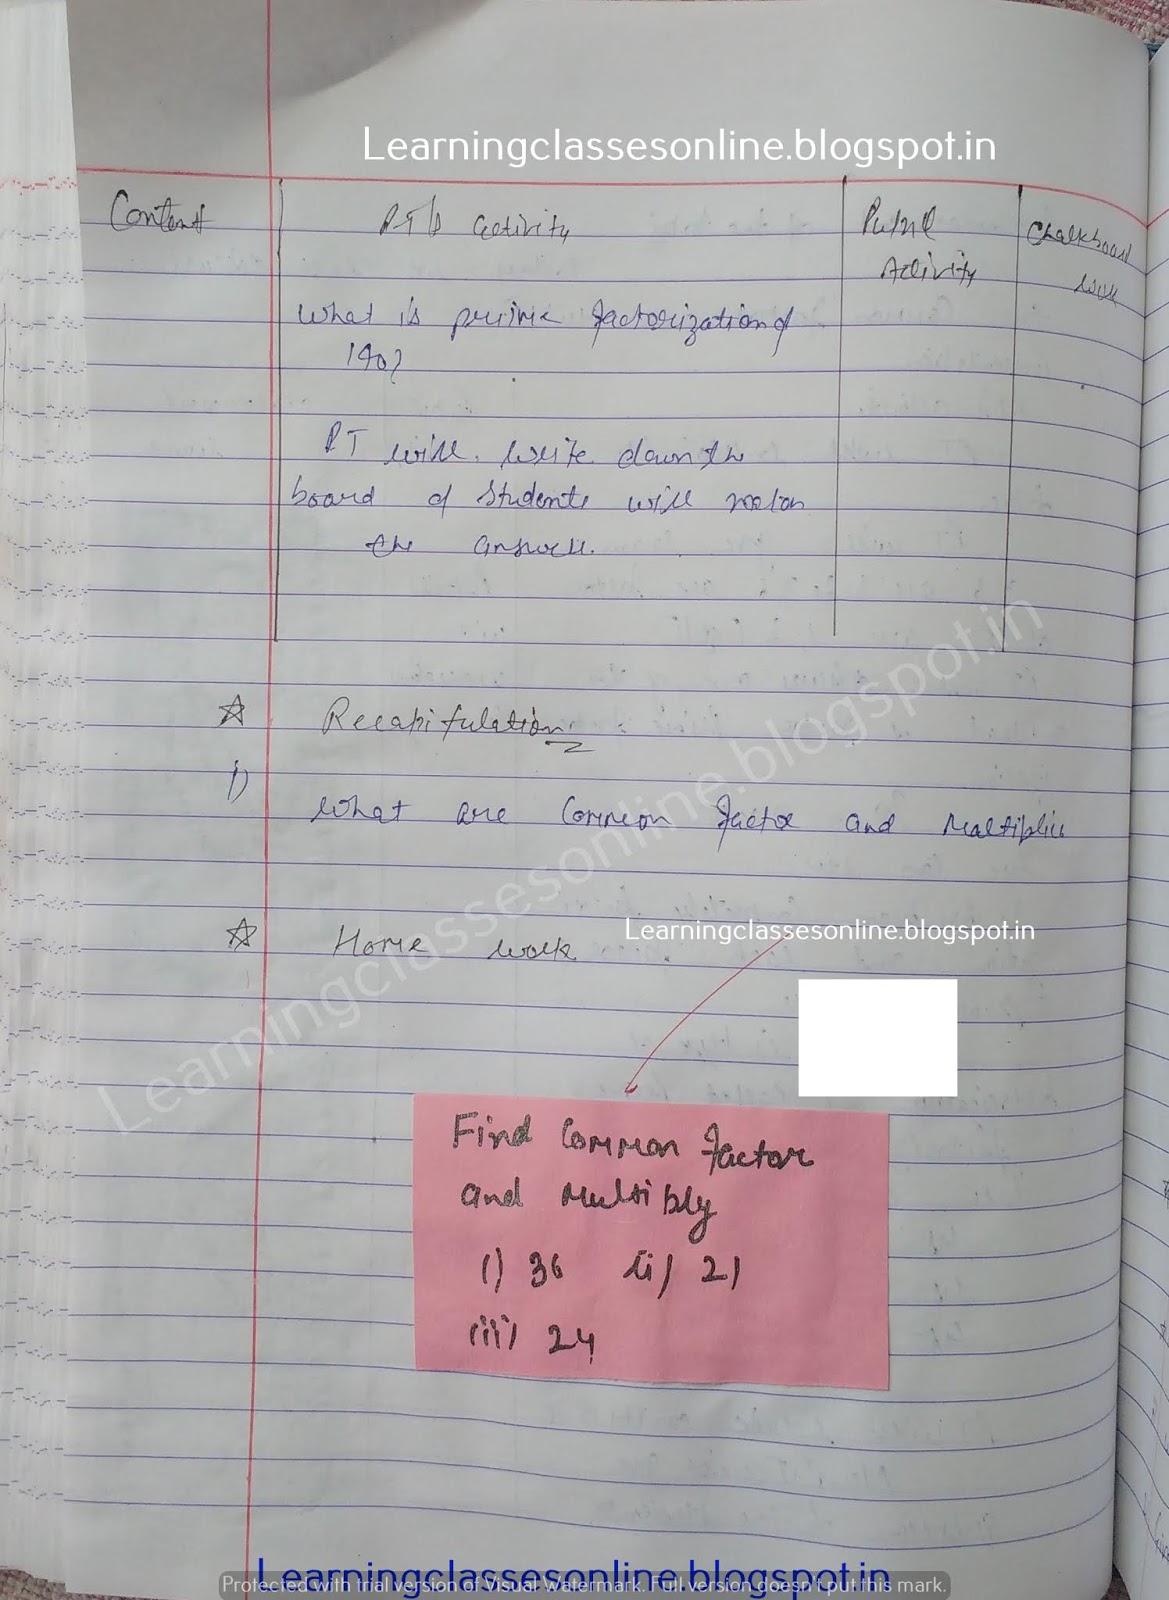 Learningclassesonline.blogspot.in
Content PT's activity Pupil Chalkboard
Activity work
What is prime factorization of
190?
PT will write down the
board of students will
the answer.
Learningclassesonline.blogspot.in
☆ Recapitulation
1) What are Common factor and Multiplies
☆ Home work
Learningclassesonline.blogspot.in
Find Common factor
and Multiply
(i) 36 (ii) 21
(iii) 24
Learningclassesonline.blogspot.in
Protected with trial version of Visual Watermark. Full version doesn't put this mark.